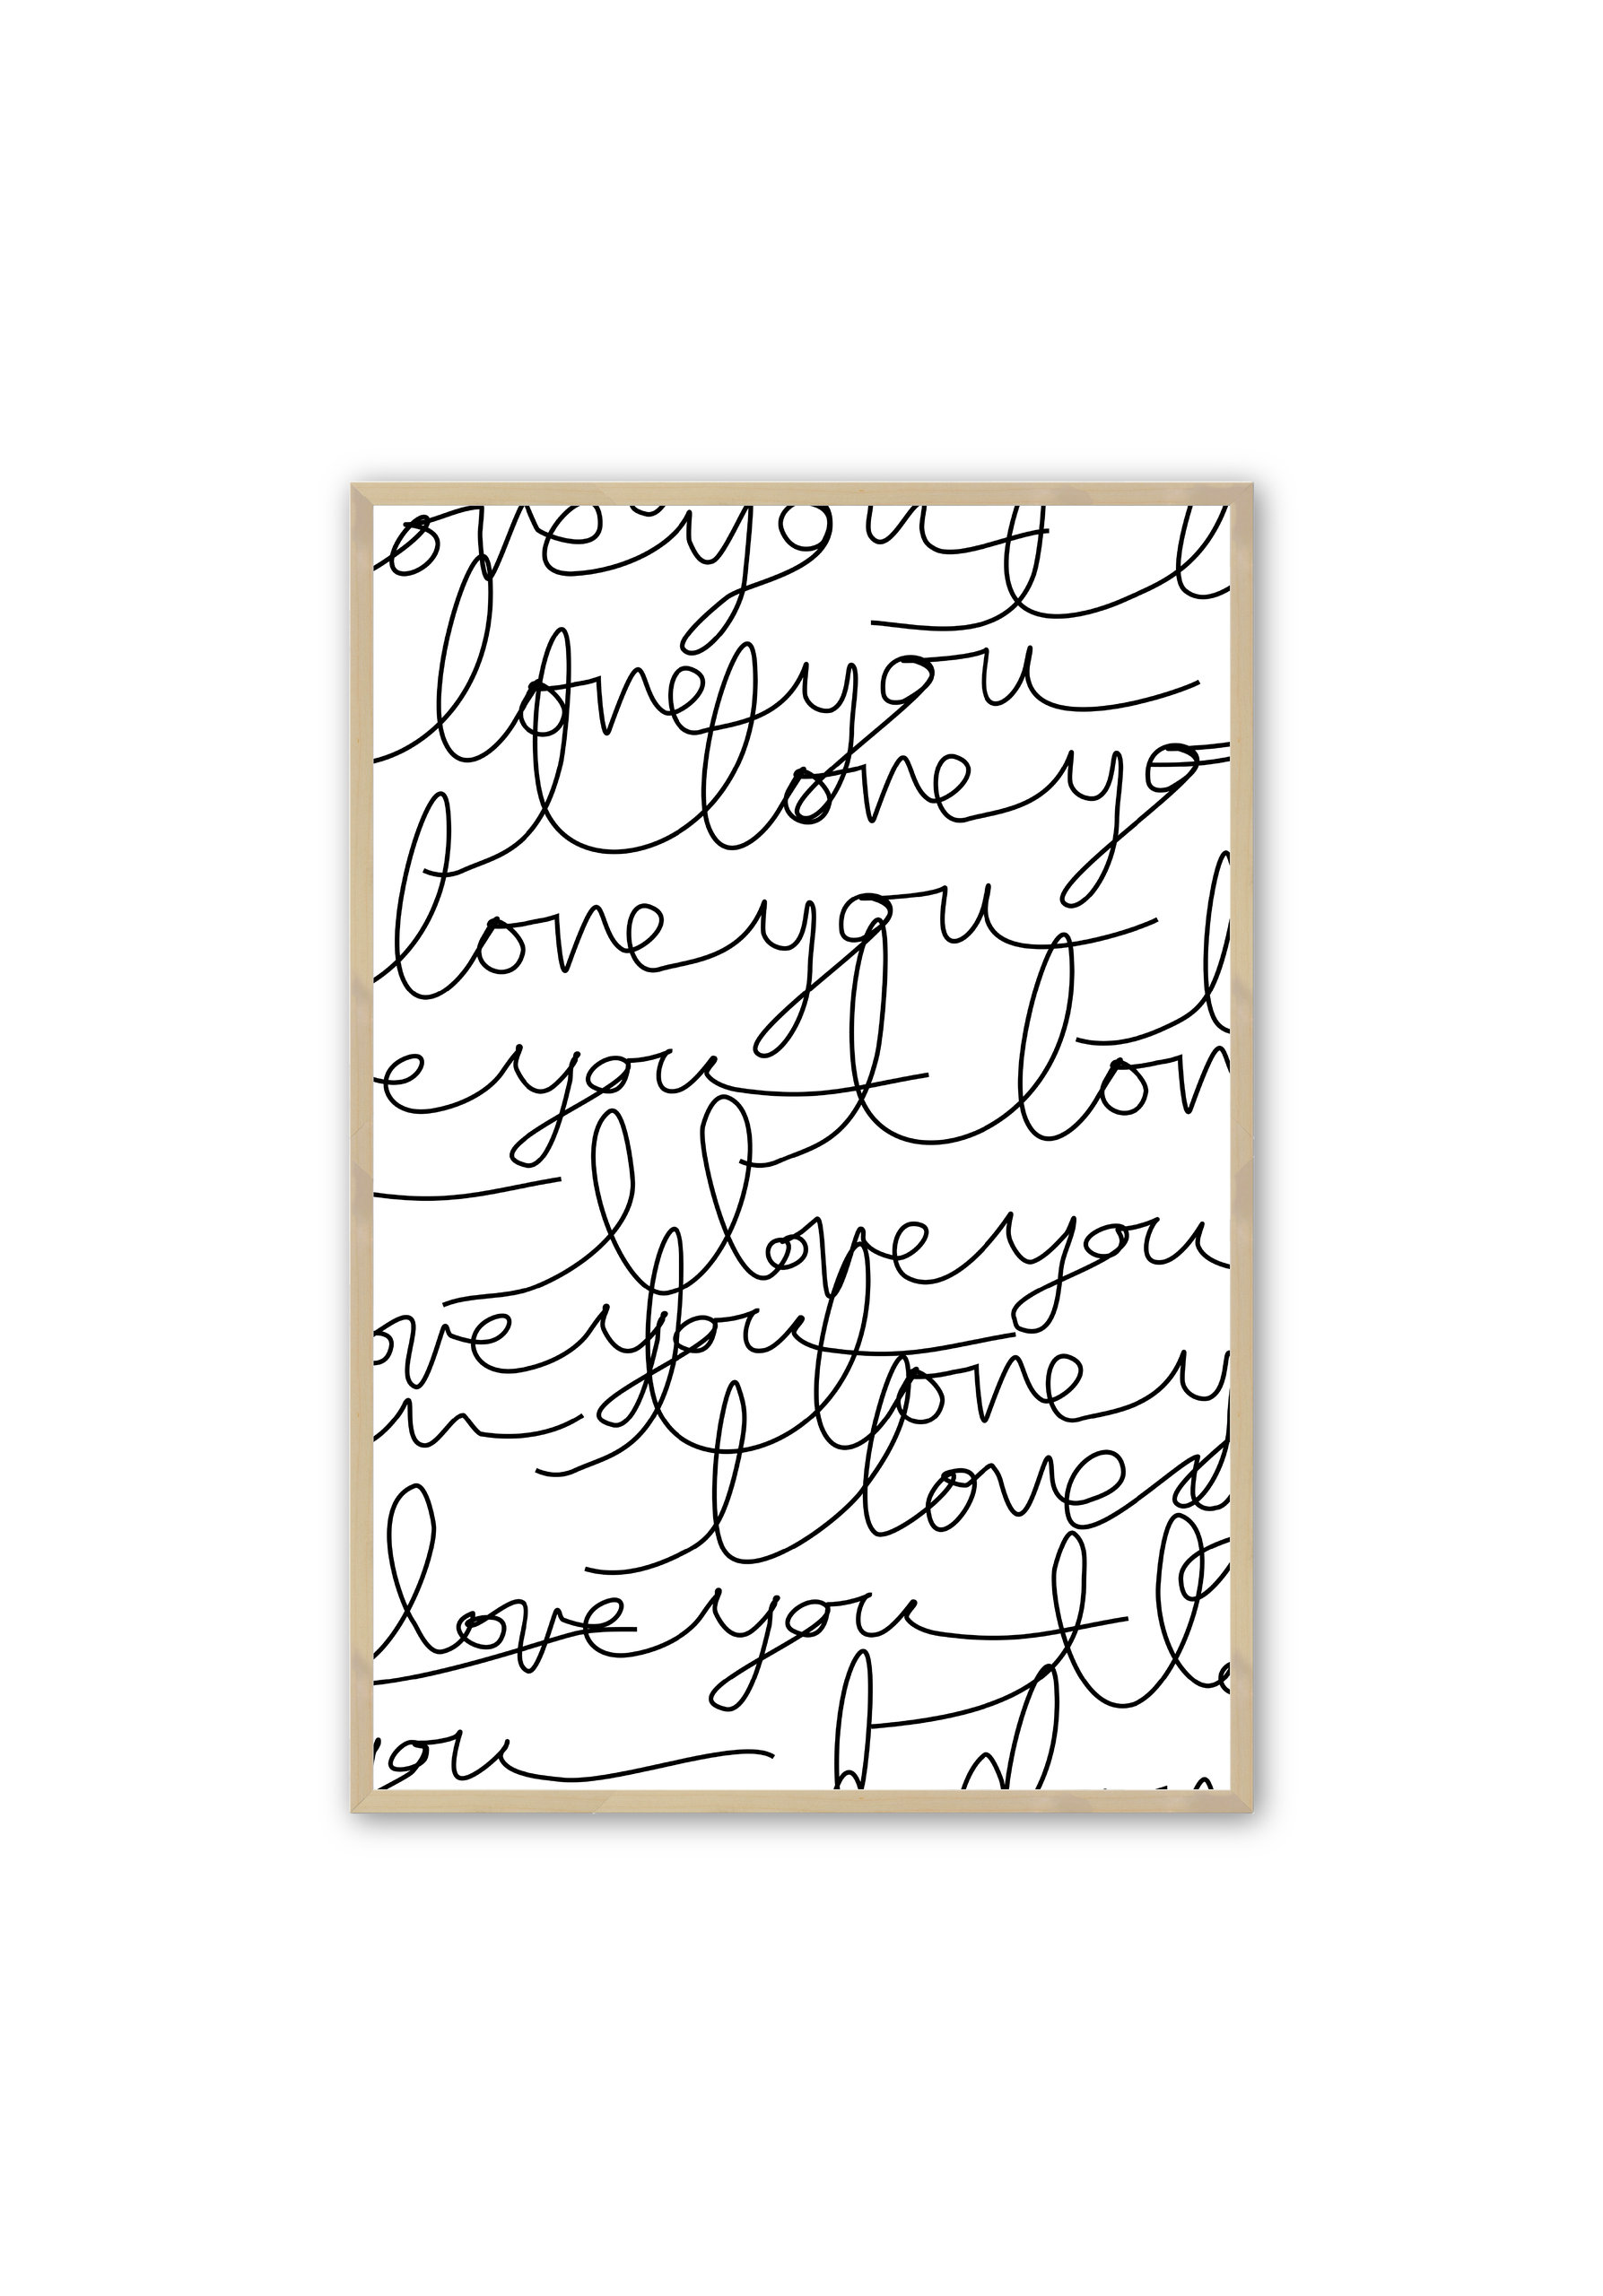 ove you I l
love you
I love yo
love you I
e you I lov
I love you
ove you
u I love y
I love y
love you I lo
you I l